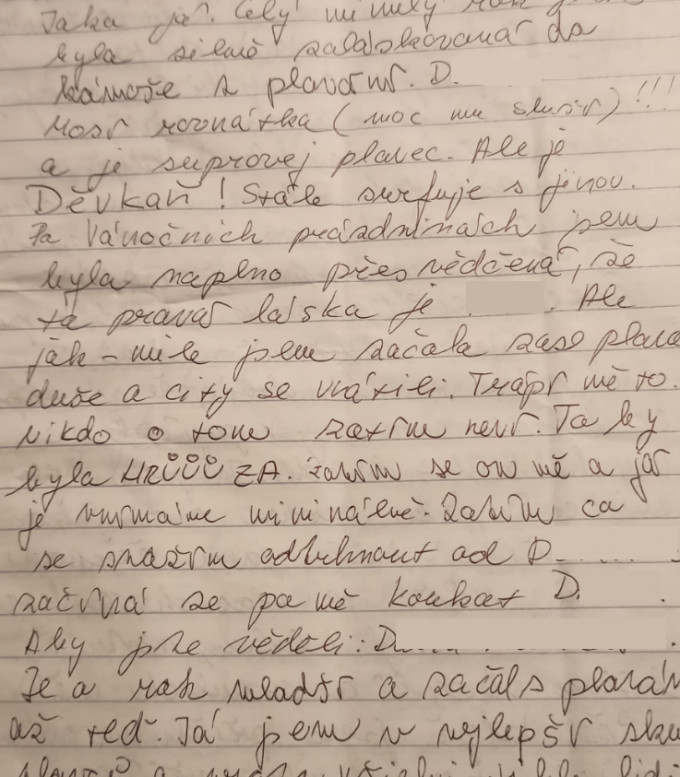 Jaka je? Celý minulý rok
byla silně zaláskovaná do
kámoše z plavání. D.
Nosí rovnátka (moc mu sluší)!!!
a je suprovej plavec. Ale je
Děvkař! Stále surfuje s jinou.
Po Vánočních prázdninách jsem
byla naplno přesvědčená, že
ta pravá láska je . Ale
jak-mile jsem začala zase plava
duše a city se vrátili. Trápí mě to.
Nikdo o tom zatím neví. To by
byla HRŮŮŮZA. Zatím se on mě a já
je vnímáme minimálně. Zatím co
se snažím odtrhnout od D.
začíná se po mě koukat D.
Aby jste věděli: D.
Je o rok mladší a začal s plavá
až teď. Já jsem v nejlepší sku